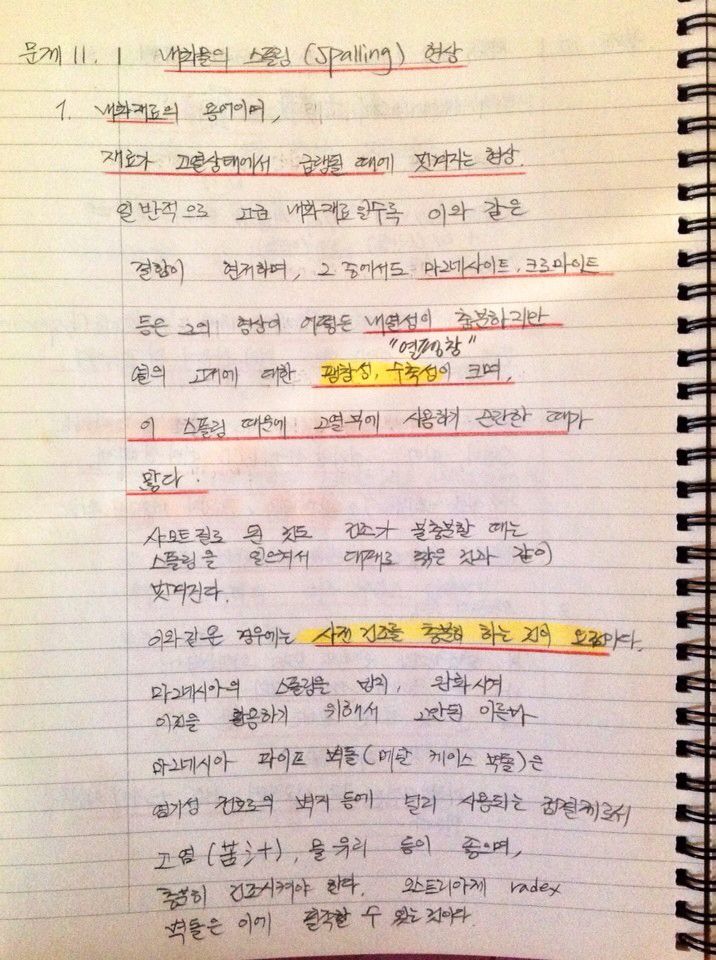 문제 11. 1 내화물의 스폴링 (Spalling) 현상
1. 내화재료의 용어이며,
재료가 고열상태에서 급랭될 때에 벗겨지는 현상.
일반적으로 고급 내화재료일수록 이와 같은
결함이 현저하며, 그 중에서도 마그네사이트, 크로마이트
등은 그의 형상이 어떻든 내열성이 충분하지만
"열팽창"
열의 고저에 대한 팽창성, 수축성이 크며,
이 스폴링 때문에 고열부에 사용하기 곤란한 때가
많다.
샤모트질로 된 것도 건조가 불충분할 때는
스폴링을 일으켜서 대패로 깎은 것과 같이
벗겨진다.
이와같은 경우에는 사전 건조를 충분히 하는 것이 요점이다.
마그네시아의 스폴링을 방지, 완화시켜
이것을 활용하기 위해서 고안된 이른바
마그네시아 파이프 벽돌(메탈 케이스 벽돌)은
염기성 전로의 벽지 등에 널리 사용되는 결제로서
고염 (苦汁), 물유리 등이 좋으며,
충분히 건조시켜야 한다. 오스트리아제 radex
벽돌은 이에 필적할 수 있는 것이다.